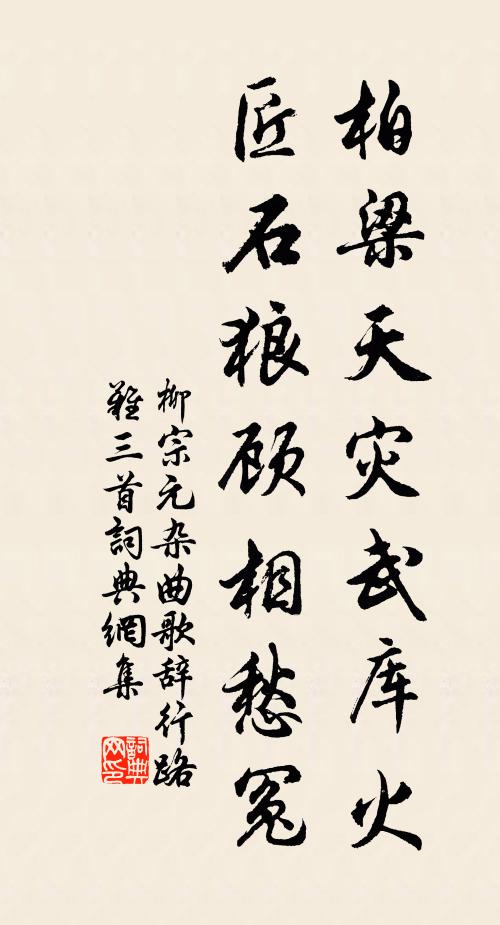 柏梁天灾武库火
匠石狼顾相愁冤
柳宗元杂曲歌辞行路
难三首詞典網集
詞典
网印